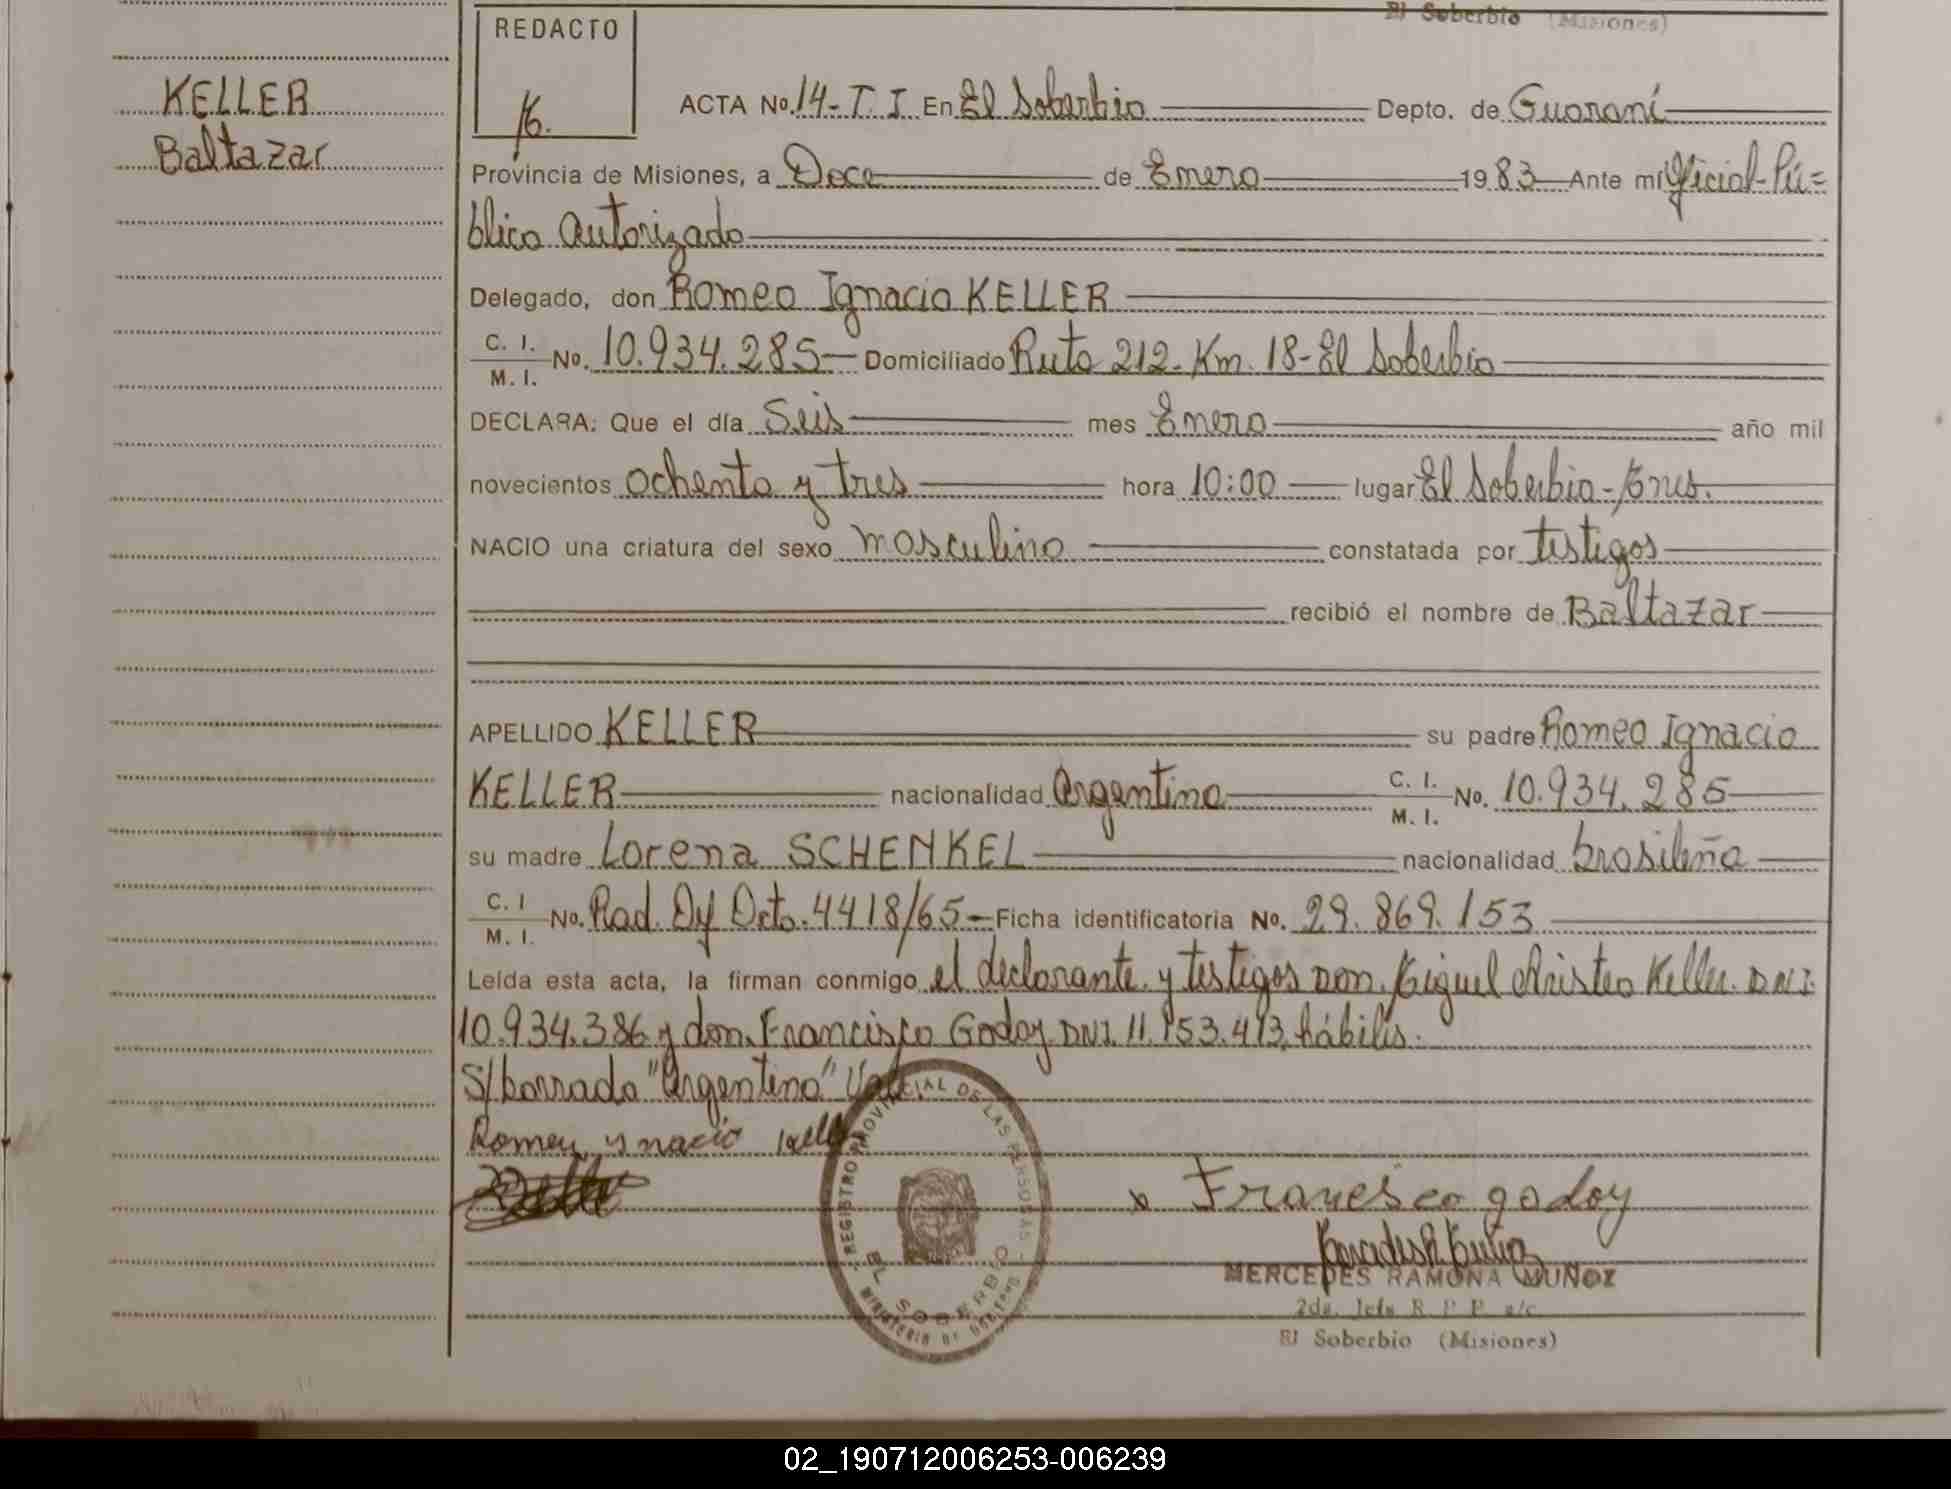 El Soberbio (Misiones)
REDACTO
KELLER
Baltazar
ACTA No. 14-T. I. En El Soberbio Depto. de Guaraní
Provincia de Misiones, a Doce de Enero 1983 Ante mí Oficial Pú=
blico Autorizado
Delegado, don Romeo Ignacio KELLER
C. I. M. I. No. 10.934.285 Domiciliado Ruta 212- Km. 18- El Soberbio
DECLARA: Que el día Seis mes Enero año mil
novecientos ochenta y tres hora 10:00 lugar El Soberbio-
NACIO una criatura del sexo masculino constatada por testigos
recibió el nombre de Baltazar
APELLIDO KELLER su padre Romeo Ignacio
KELLER nacionalidad Argentina C. I. M. I. No. 10.934.285
su madre Lorena SCHENKEL nacionalidad brasileña
C. I M. I. No. Rad. Dcto. 4418/65 Ficha identificatoria No. 29.869.153
Leída esta acta, la firman conmigo el declarante y testigos Don. Miguel Aristeo Keller. D.N.I.
10.934.386 y don. Francisco Godoy DNI. 11.153.413, hábiles.
S/borrado "Argentina" Vale
Romeu ygnacio Keller
REGISTRO PROVINCIAL DE LAS PERSONAS
EL SOBERBIO
MINISTERIO DE GOBIERNO
x Francisco godoy
MERCEDES RAMONA MUÑOZ
2da. Jefe R. P. P. a/c
El Soberbio (Misiones)
02_190712006253-006239